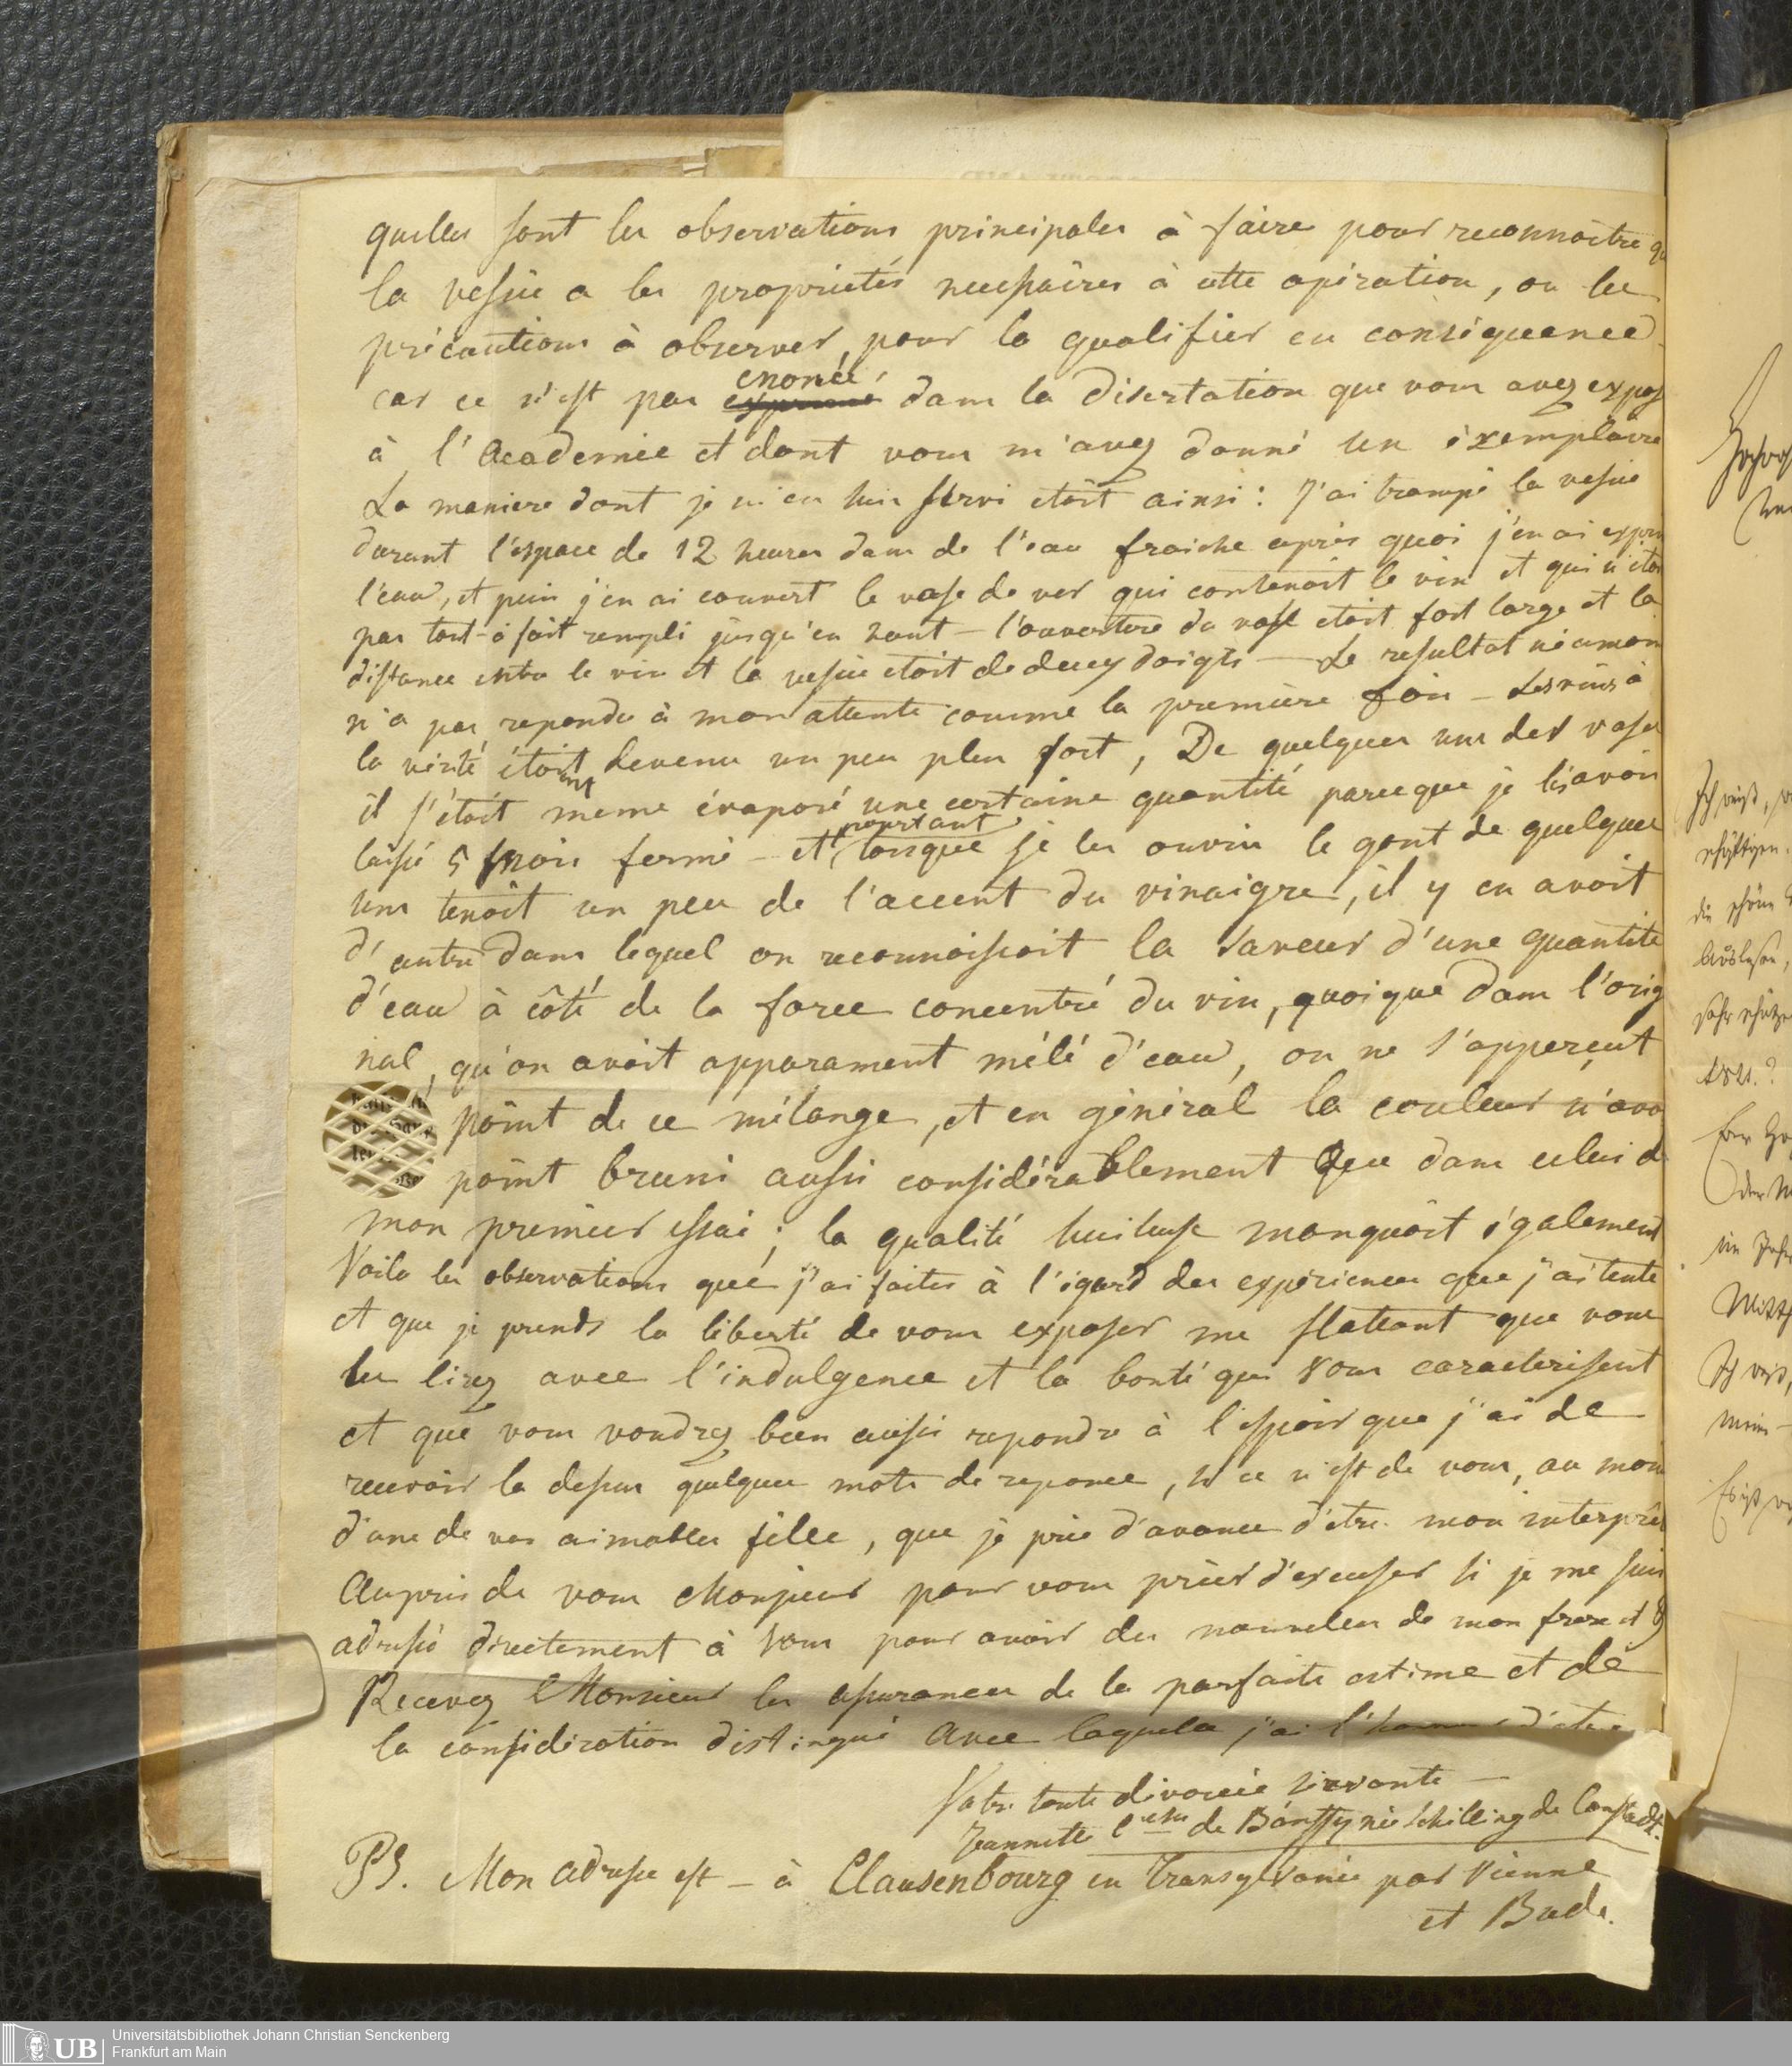 quelles sont les observations principales à faire pour reconnoitre
la vessie a les proprietés necessaires à cette opération, ou les
précautions à observer, pour la qualifier en conséquence
car ce n'est pas enoncé dans la disertation que vous avez expos
à l'Academie et dont vous m'avez donné un éxemplaire
La maniere dont je m'en suis servi etoit ainsi: J'ai trempé la vessie
durant l'espace de 12 heures dans de l'eau fraiche après quoi j'en ai exprim
l'eau, et puis j'en ai couvert le vase de ver qui contenoit le vin et qui n'étoi
pas tout-à fait rempli jusqu'en haut – l'ouverture du vase etoit fort large et la
distance entre le vin et la vessie etoit de deux doigts — Le resultat néamoin
n'a pas repondu à mon attente comme la première fois – Les vins à
la verité étoint devenu un peu plus fort, De quelques uns des vases
il s'étoit meme évaporé une certaine quantité parceque je les avois
laissé 5 mois fermé – et pourtant lorsque je les ouvris le gout de quelques
uns tenoit un peu de l'accent du vinaigre, il y en avoit
d'autre dans lequel on reconnoissoit la saveur d'une quantité
d'eau à côté de la force concentré du vin, quoique dans l'orig
nal, qu'on avoit apparament mélé d'eau, on ne s'apperçeut
point de ce mélange, et en général la couleur n'avo
point bruni aussi considérablement que dans celui d
mon premier essai; la qualité huileuse manquoit également
Voila les observations que j'ai faites à l'égard des expériences que j'ai tenté
et que je prends la liberté de vous exposer me flattant que vous
les lirez avec l'indulgence et la bonté qui vous caracterisent
et que vous voudrez bien aussi repondre à l'espoir que j'ai de
recevoir la dessus quelques mots de reponce, si ce n'est de vous, au moin
d'une de vos aimables fille, que je prie d'avance d'etre mon interprèt
Auprès de vous Monsieur pour vous prier d'excuser si je me suis
adressé directement à vous pour avoir des nouvelles de mon frere et
Recevez Monsieur les assurances de la parfaite estime et de
la considération distingué avec laquelle j'ai l'honneur d'etre
Votre toute dévouée servante –
Jeannette Ctesse de Bánffy née Schilling de Canstadt.
PS. Mon adresse est – à Clausenbourg en Transylvanie par Vienne
et Bude.
Universitätsbibliothek Johann Christian Senckenberg
Frankfurt am Main
UB